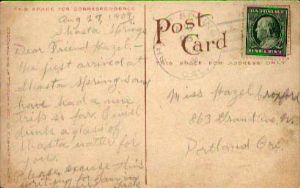 THIS SPACE FOR CORRESPONDENCE
Aug 29, 1909
Shasta Springs
Dear Friend Hazel-
We first arrived at
Shasta Springs and
have had a nice
trip so far. I will
drink a glass of
Shasta water for
you.
Please excuse this
Post
Card
THIS SPACE FOR ADDRESS ONLY
Miss Hazel
863 Grand Ave. N.
Portland Ore.